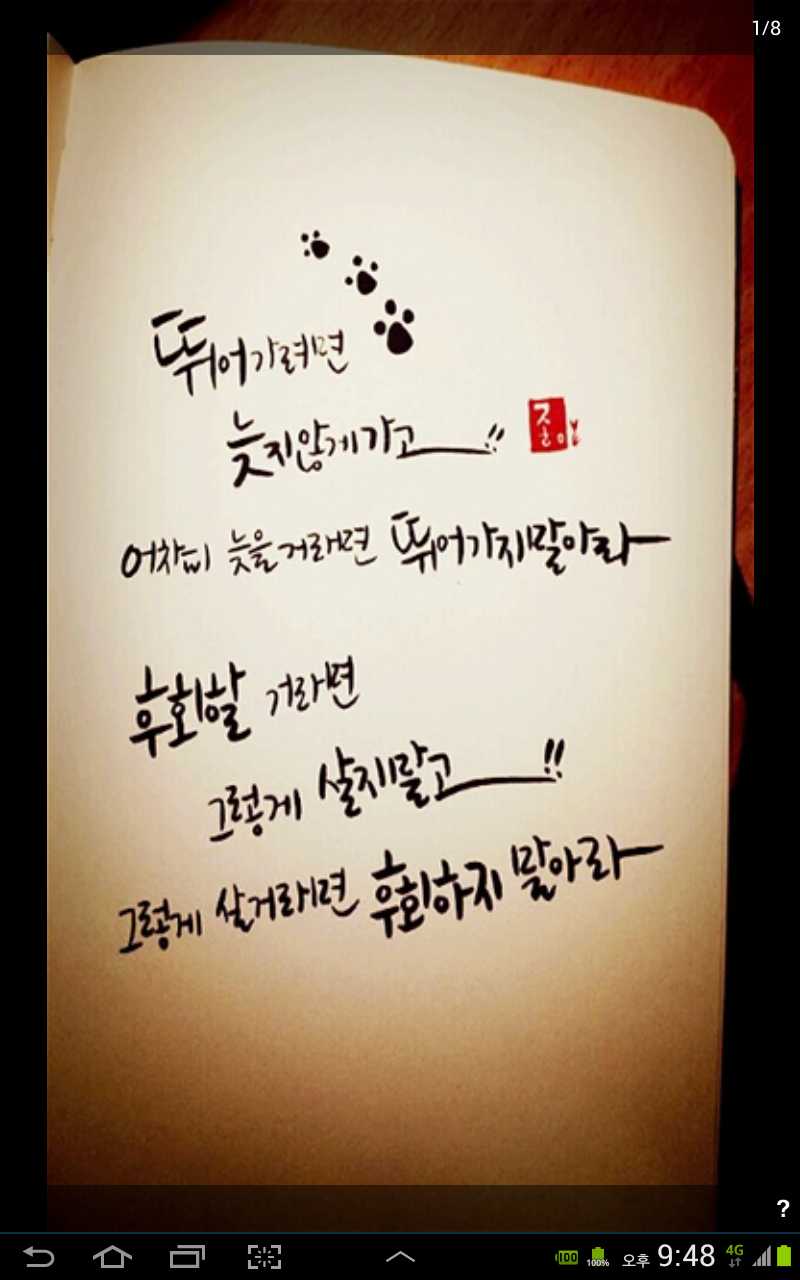 1/8
뛰어가려면
늦지않게가고 !!
어차피 늦을거라면 뛰어가지말아라
후회할 거라면
그렇게 살지말고 !!
그렇게 살거라면 후회하지 말아라
?
100
100%
오후 9:48 4G